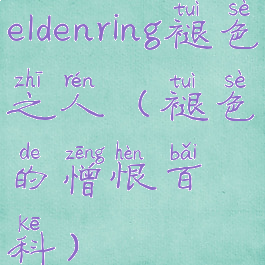 tuì sè
eldenring褪色
zhī rén tuì sè
之人（褪色
de zēng hèn bǎi
的憎恨百
kē
科）